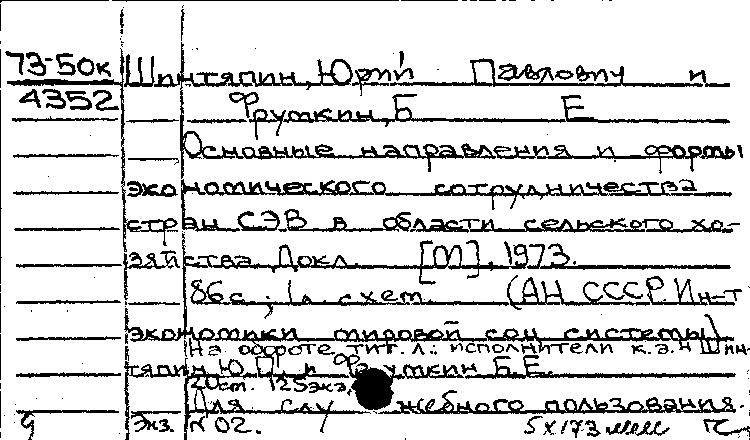 73-50к Шинтяпин, Юрий Павлович и
4352 Фрумкин, Б Е
Основные направления и формы
экономического сотрудничества
стран СЭВ в области сельского хо-
зяйства. Докл. [М], 1973.
86с.; 1л. схем. (АН СССР. Ин-т
экономики мировой соц системы)
На обороте тит. л.: исполнители к.э.н Шин-
тяпин Ю.П. и Фрумкин Б.Е.
20см. 125экз.
Для служебного пользования.
9 Экз. №02.